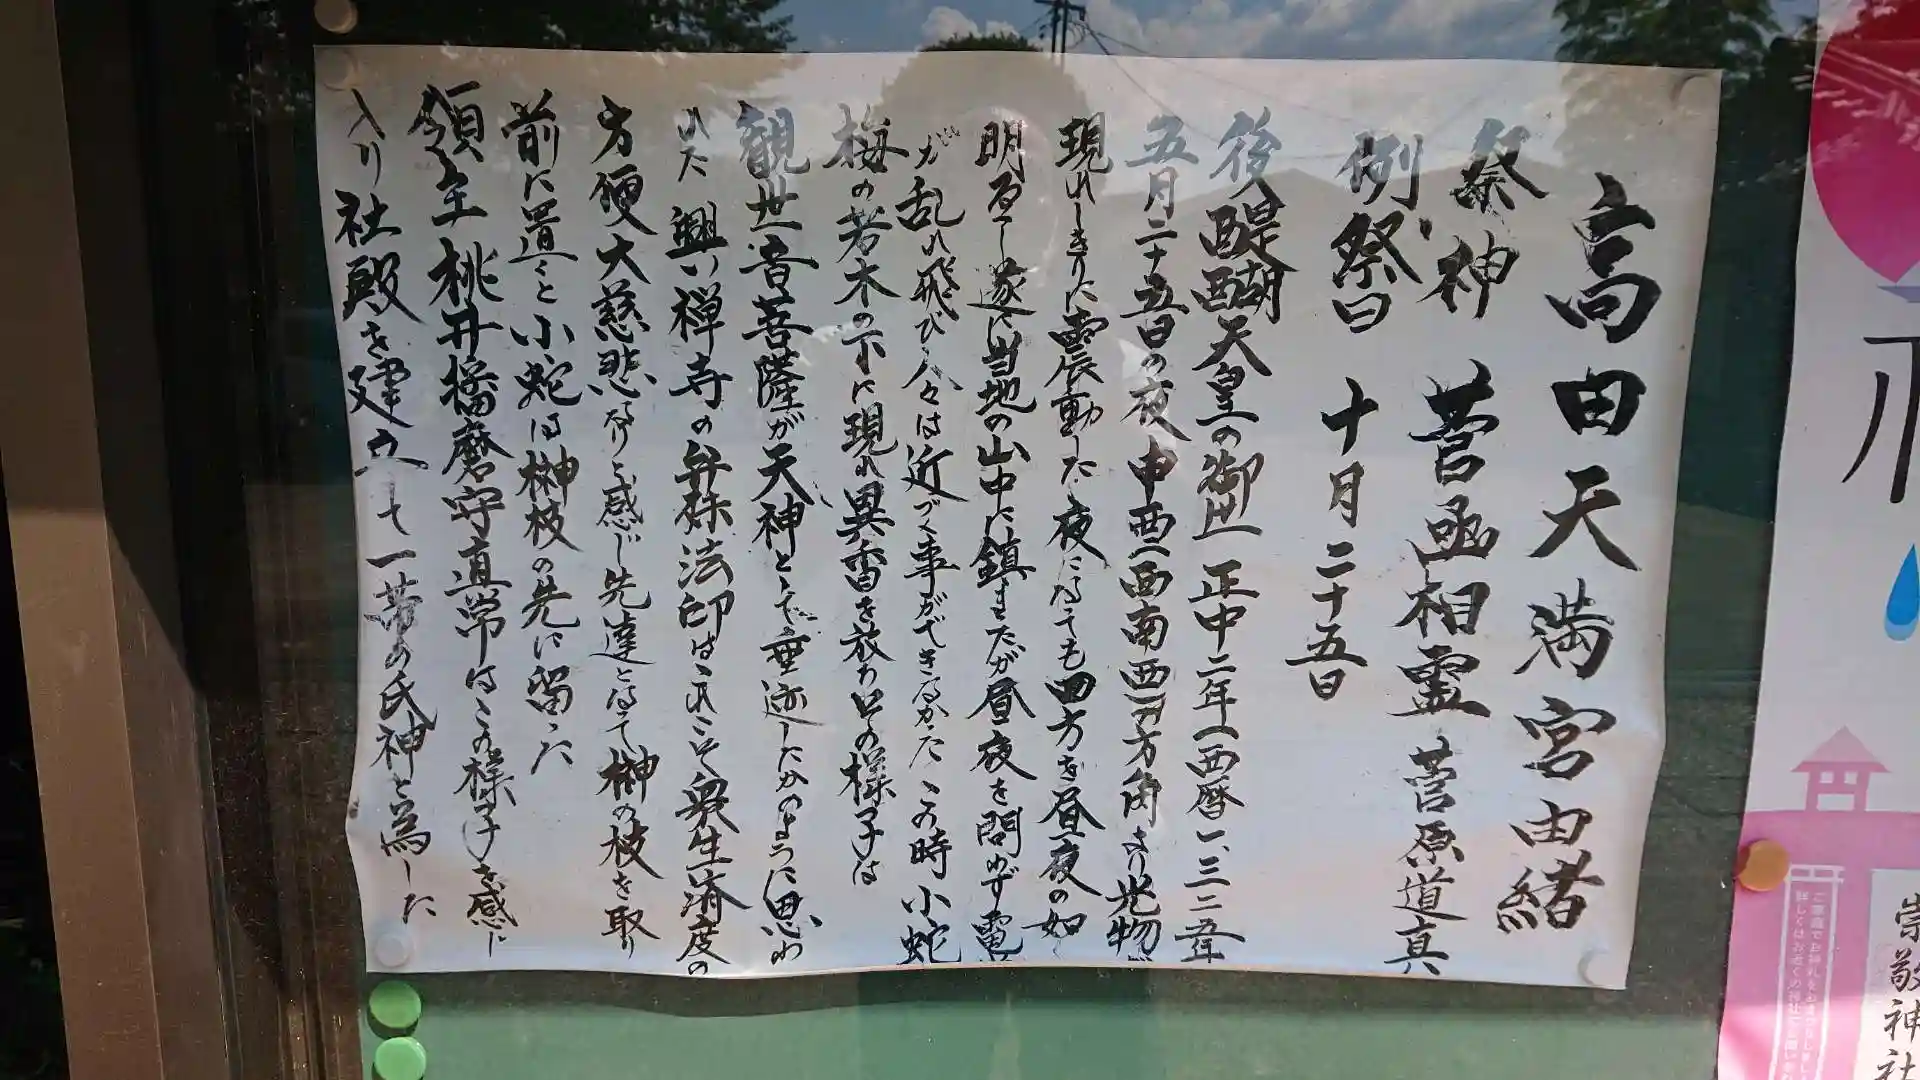 高田天満宮由緒
祭神 菅丞相霊 菅原道真
例祭日 十月二十五日
後醍醐天皇の御世 正中二年(西暦一、三二五年
五月二十五日の夜申酉(西南西)方角より光物が
現れしきりに震動した夜になっても四方を昼夜の如く
明るし遂に当地の山中に鎮またが昼夜を問わず電
が乱れ飛び人々は近づく事ができなかたこの時 小蛇
梅の若木の下に現れ異香を放ちその様子は
観世音菩薩が天神として垂迹したかのように思わ
れた 興い禅寺の弁弥法印はこれこそ衆生済度の
方便大慈悲なりと感じ先達となて榊の枝を取り
前に置くと小蛇は榊枝の先に留った
領主桃井播磨守直常はこの様子を感じ
入り社殿を建立して一帯の氏神と為した
崇敬神社